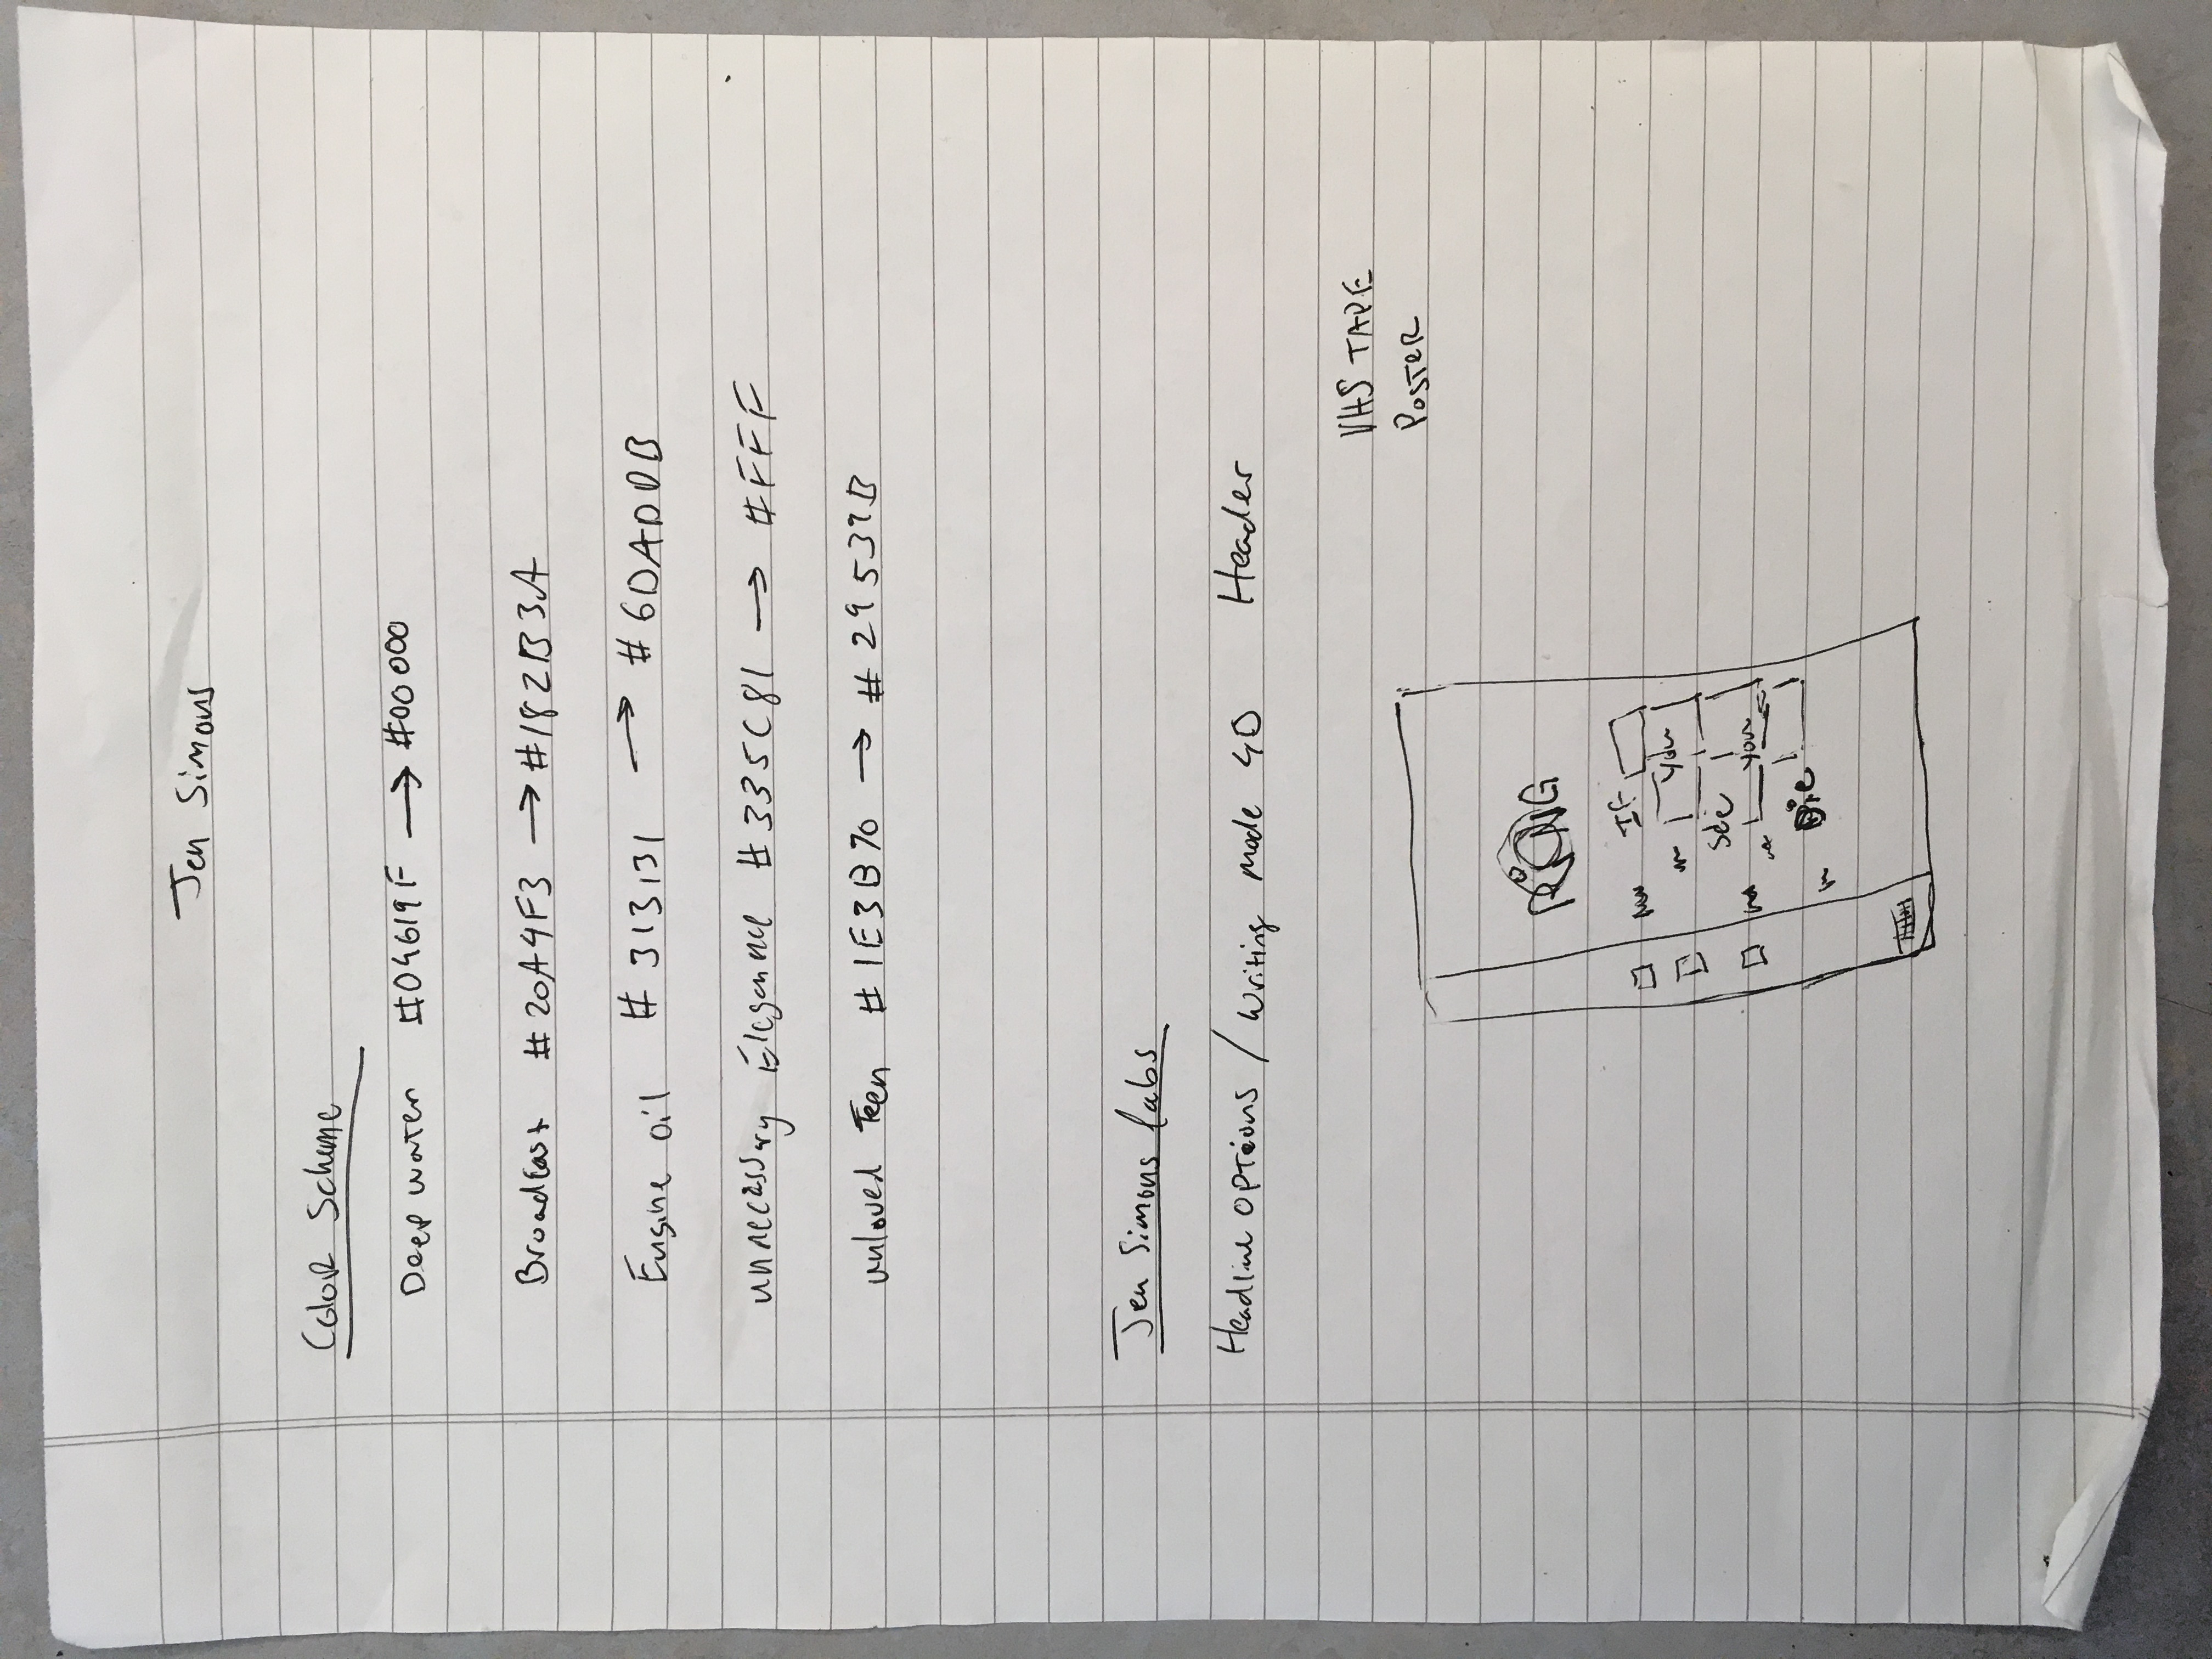 Jen Simons
Color Scheme
Deep water #04619F → #00000
Broadcast #20A4F3 → #182B3A
Engine oil #313131 → #6DADDB
unnecessary Elegance #335C81 → #FFF
unloved Teen #1E3B70 → #29539B
Jen Simons labs
Headline options / Writing Mode 4D Header
VHS TAPE
POSTER
RiNG
IF
You
See
you
Die